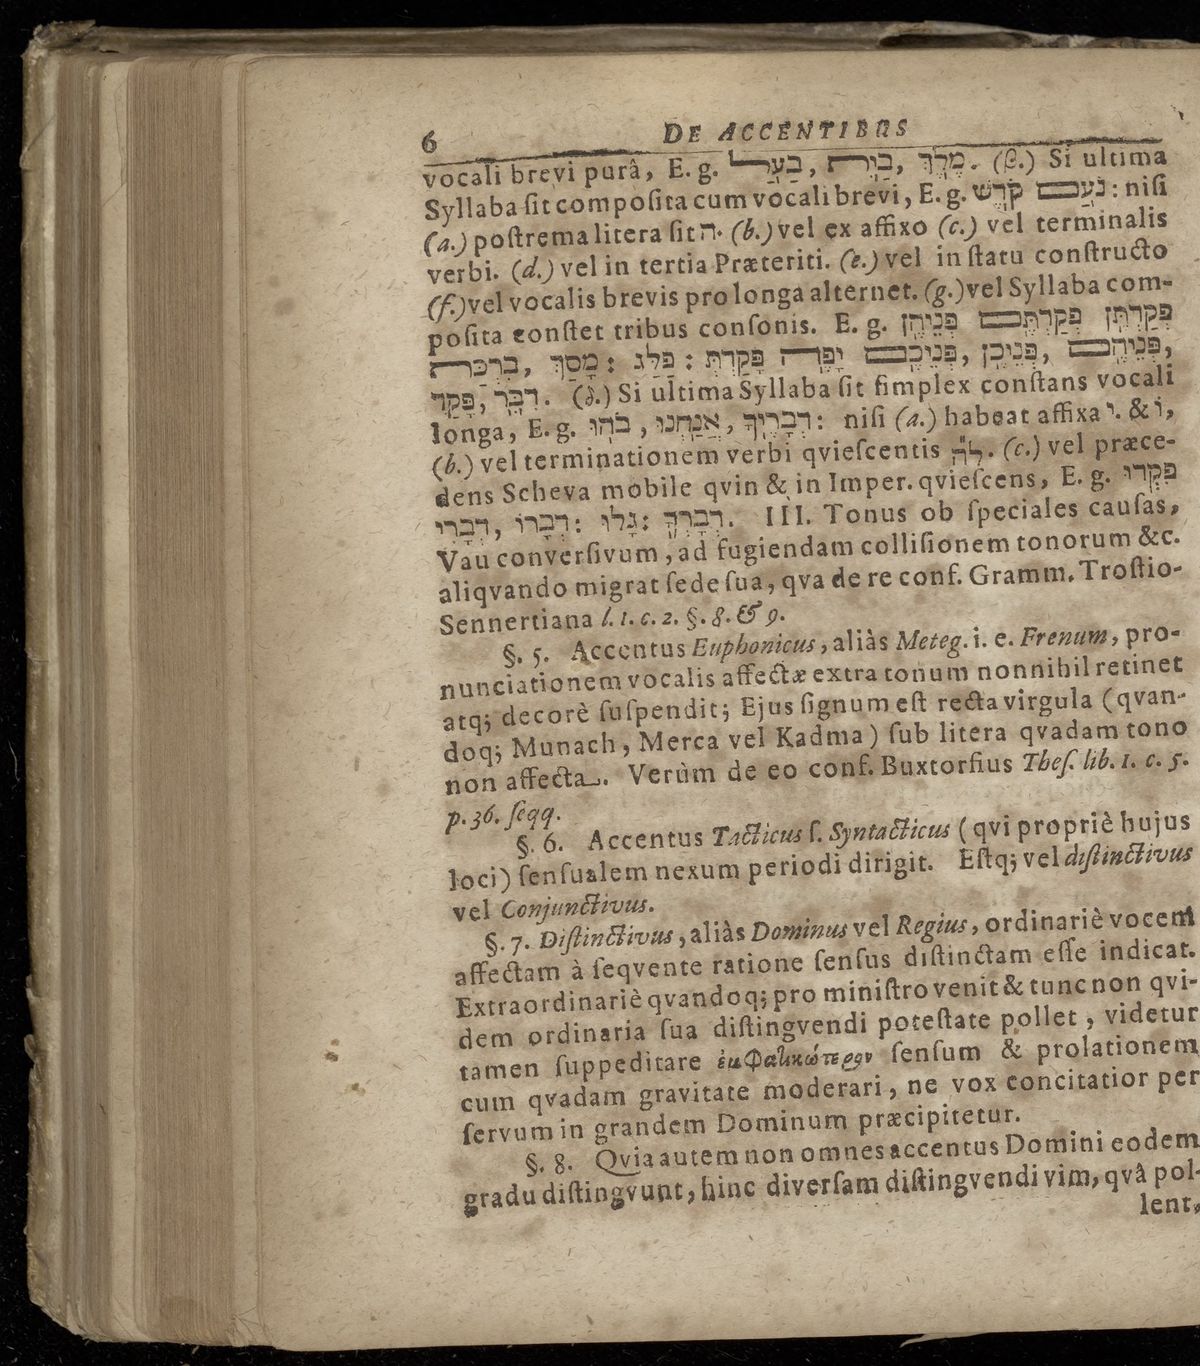 6 DE ACCENTIBUS
vocali brevi purâ, E. g. בַעַל, בַיִת, מֶלֶךְ. (β.) Si ultima
Syllaba ſit compoſita cum vocali brevi, E. g. נֹעַם קֹדֶשׁ: niſi
(a.) poſtrema litera ſit ה. (b.) vel ex affixo (c.) vel terminalis
verbi. (d.) vel in tertia Præteriti. (e.) vel in ſtatu conſtructo
(f.) vel vocalis brevis pro longa alternet. (g.) vel Syllaba com-
poſita conſtet tribus conſonis. E. g. פְּקַדְתֶּן פְּקַדְתֶּם פְּנֵיהֶן
פְּנֵיהֶם, פְּנֵיכֶן, פְּנֵיכֶם יָפֶה פָּקַדְתְּ: פַלַג: מָסַךְ,
דִבֶּר, פָּקַד. (δ.) Si ultima Syllaba ſit ſimplex conſtans vocali
longa, E. g. דְבָרֶיךָ, אֲנַחְנוּ, בֹהוּ: niſi (a.) habeat affixa י. & וֹ,
(b.) vel terminationem verbi qvieſcentis לה. (c.) vel præce-
dens Scheva mobile qvin & in Imper. qvieſcens, E. g. פִּקְדוּ
דְבָרְךָ: גָלוּ: דְבָרוֹ, דְבָרִי. III. Tonus ob ſpeciales cauſas,
Vau converſivum, ad fugiendam colliſionem tonorum &c.
aliqvando migrat ſede ſua, qva de re conf. Gramm. Troſtio-
Sennertiana l. 1. c. 2. §. 8. & 9.
§. 5. Accentus Euphonicus, aliàs Meteg. i. e. Frenum, pro-
nunciationem vocalis affectæ extra tonum nonnihil retinet
atq; decorè ſuſpendit; Ejus ſignum eſt recta virgula (qvan-
doq; Munach, Merca vel Kadma) ſub litera qvadam tono
non affecta. Verùm de eo conf. Buxtorfius Theſ. lib. 1. c. 5.
p. 36. ſeqq.
§. 6. Accentus Tacticus ſ. Syntacticus (qvi propriè hujus
loci) ſenſualem nexum periodi dirigit. Eſtq; vel diſtinctivus
vel Conjunctivus.
§. 7. Diſtinctivus, aliàs Dominus vel Regius, ordinariè vocem
affectam à ſeqvente ratione ſenſus diſtinctam eſſe indicat.
Extraordinariè qvandoq; pro miniſtro venit & tunc non qvi-
dem ordinaria ſua diſtingvendi poteſtate pollet, videtur
tamen ſuppeditare ἐμφατικώτερον ſenſum & prolationem
cum qvadam gravitate moderari, ne vox concitatior per
ſervum in grandem Dominum præcipitetur.
§. 8. Qvia autem non omnes accentus Domini eodem
gradu diſtingvunt, hinc diverſam diſtingvendi vim, qvâ pol-
lent,